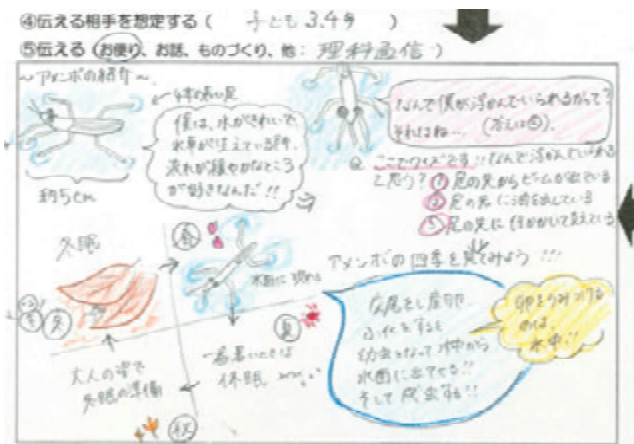 ④伝える相手を想定する（ 子ども 3.4才 ）
⑤伝える（お便り、お話、ものづくり、他： 理科通信 ）
～アメンボの紹介～
4本の長い足
僕は、水がきれいで、
水草が生えている所や、
流れが緩やかなところ
が好きなんだ!!
約5cm
なんで僕が浮かんでいられるかって？
それはね… （答えは⑤）
ここでクイズです!! なんで浮かんでいられる
と思う？ ① 足の先からビームが出ている
② 足の先に油を出している
③ 足の先に
アメンボの四季を見てみよう!!!
冬眠
春
水面に現れる
夏
一番暑いときは
休眠
冬
大人の姿で
冬眠の準備
秋
交尾をし産卵、
ふ化をすると
幼虫となって水中から
水面に出てくる!!
そして成虫する!!
卵をうみつける
のは、
水中!!